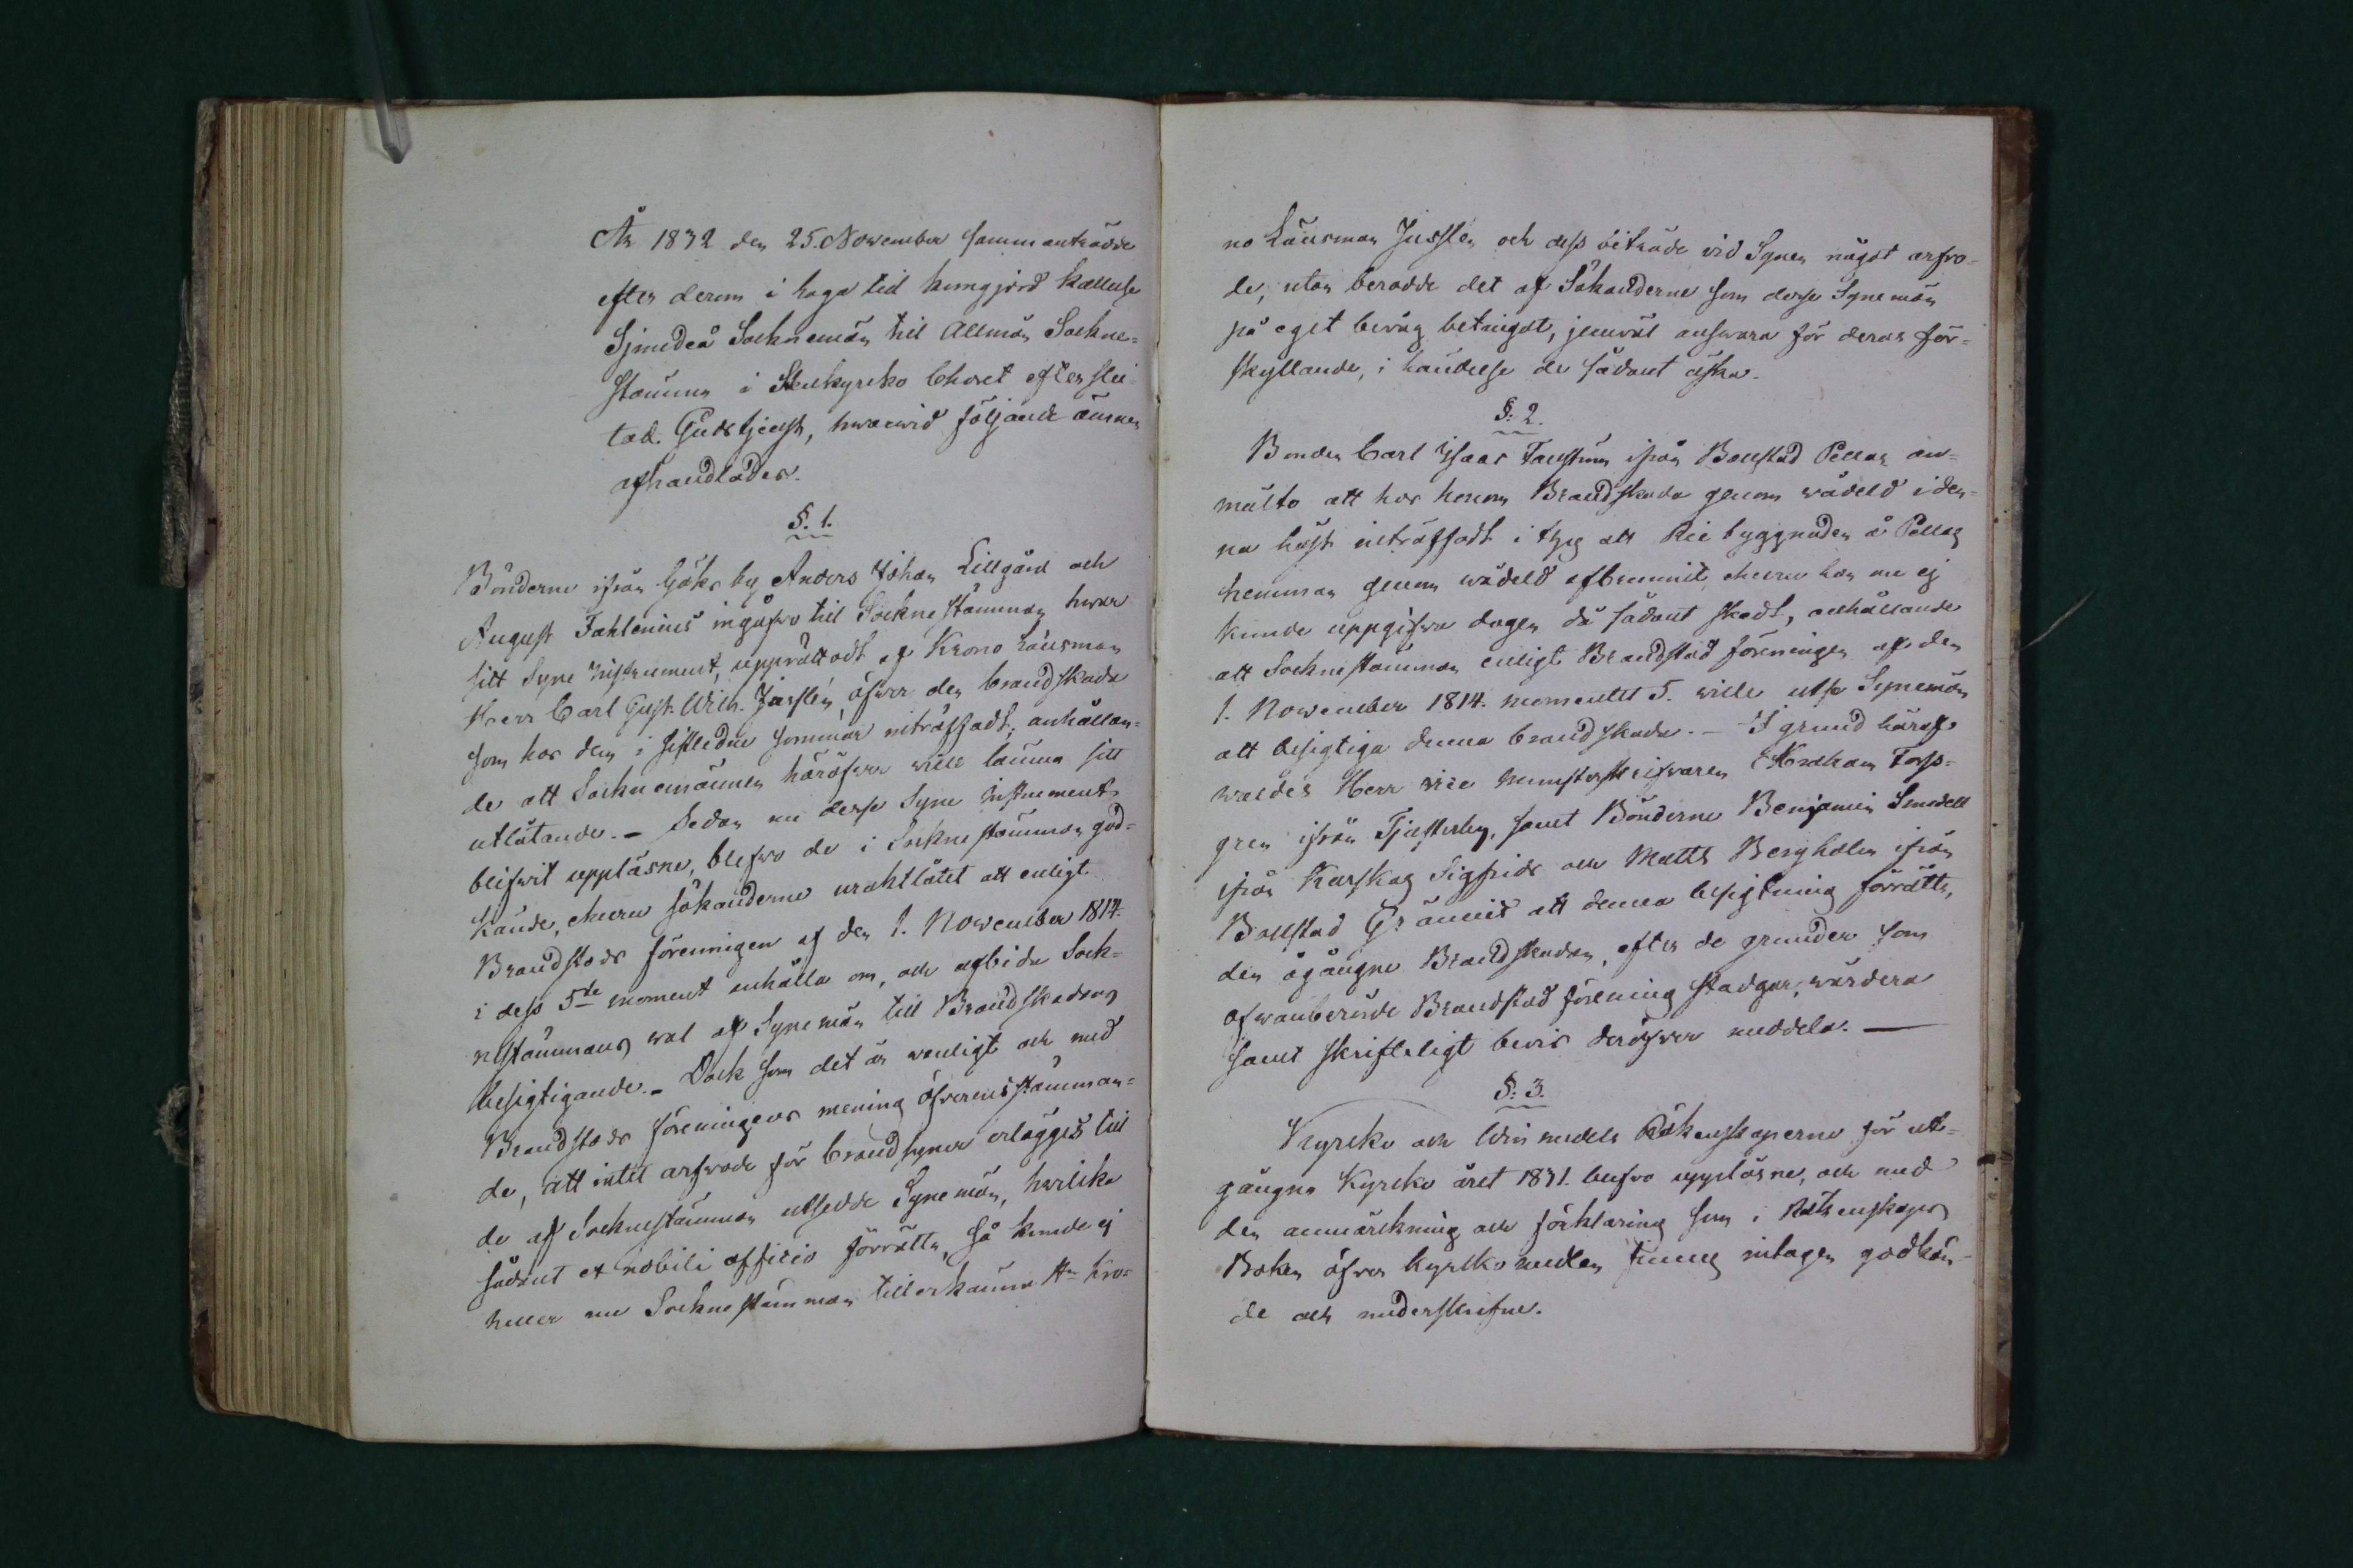 År 1832 den 25. November sammanträdde
efter derom i laga tid kungjord kallelse
Sjundeå Socknemän till Allmän Sockne-
stämma i Stenkyrko Choret efter slu-
tad. Gudstjenst, hwarwid följande ämnen
afhandlades.
§. 1.
Bönderne ifrån Göks by Anders Johan Lillgård och
August Fahlenius ingåfwo till Sockne stämman hwar
sitt Syne Instrument, upprättadt af Krono Länsman
Herr Carl Gust. Wilh. Jusslén, öfwer den brandskada
som hos dem i sistledne sommar inträffadt, anhållan-
de att Socknemännen häröfwer wille lämna sitt
utlåtande. - Sedan nu desse Syne Instrument
blifwit uppläsne, blefwo de i Sockne stämman god-
kände, ehuru sökanderne uraktlåtit att enligt
Brandstods föreningen af den 1. November 1814.
i dess 5te moment anhålla om, och afbida Sock-
nestämmans wal af Synemän till Brandskadans
besigtigande. - Dock som det är wanligt och med
Brandstods föreningens mening öfverensstämman-
de, att intet arfwode för brandsyner erlägges till
de af Socknestämman utsedde Synemän, hwilka
sådant ex nobili officio förrätta, så kunde ej
heller nu Sockne stämman tillerkänna Hr Kro-
no Länsman Jusslén och dess biträde vid Synen något arfwo-
de, utan berodde det af Sökanderne som desse Synemän
på eget bevåg betingat, jemväl answara för deras för-
skyllande, i händelse de sådant äska.
§. 2.
Bonden Carl Isaac Fauström ifrån Bollstad Pellas an-
mälte att hos honom Brandskada genom wådeld i den-
na höst inträffadt i ty att Rie byggnaden å Pellas
hemman genom wådeld afbrunnit, ehuru han nu ej
kunde uppgifwa dagen då sådant skedt, anhållande
att Socknestämman enligt Brandstod föreningen af den
1. November 1814. momentet 5. wille utse Synemän
att besigtiga denna brandskada. - I grund häraf
waldes Herr vice Munsterskrifvaren Abraham Forss-
gren ifrån Tjusterby, samt Bönderne Benjamin Smedell
ifrån Karskog Sigfrids och Matts Bergholm ifrån
Bollstad Grännis att denna besigtning förrätta,
den ågångne Brandskadan, efter de grunder som
ofwanberörde Brandstod förening stadgar, wärdera
samt skrifteligt bevis deröfwer meddela. —
§. 3.
Kyrko och Winmedels Räkenskaperne för ut-
gångne Kyrko året 1831. blefwo uppläsne, och med
den anmärkning och förklaring som i Räkenskaps
Boken öfver kyrkomedlen finnes intagen godkän-
de och underskrifne.